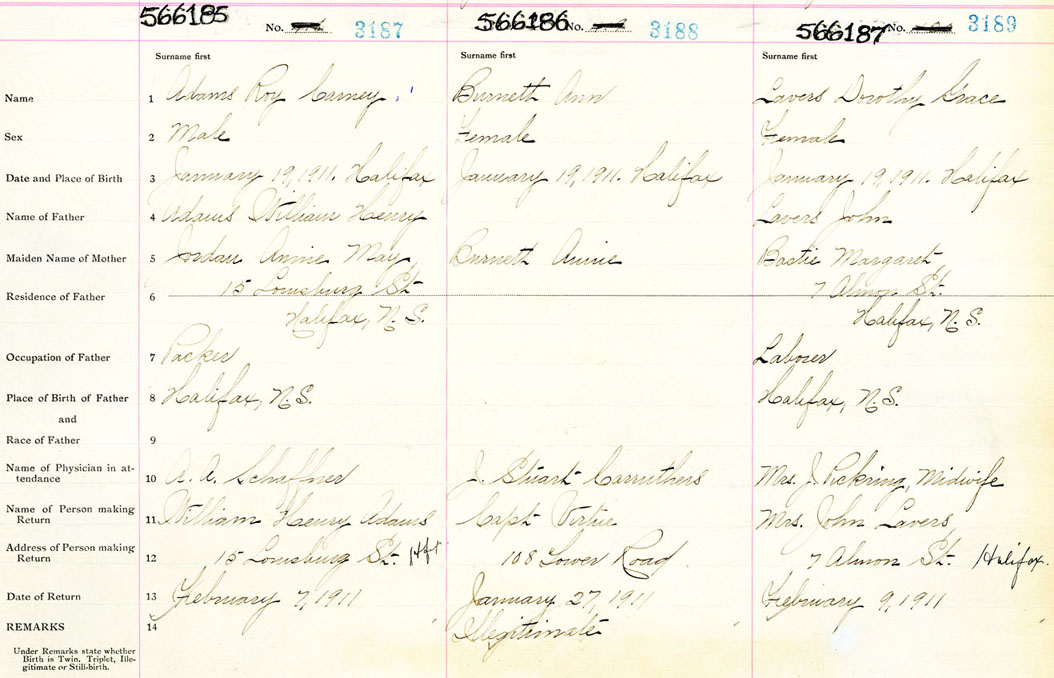 566185 No. 3187 566186 No. 3188 566187 No. 3189
Surname first Surname first Surname first
Name 1 Adams Roy Carney Burneth Ann Lavers Dorothy Grace
Sex 2 Male Female Female
Date and Place of Birth 3 January 19, 1911. Halifax January 19, 1911. Halifax January 19, 1911. Halifax
Name of Father 4 Adams William Henry Lavers John
Maiden Name of Mother 5 Jordan Annie May Burneth Annie Bastie Margaret
Residence of Father 6 15 Louisburg St. 7 Almon St.
Halifax, N.S. Halifax, N.S.
Occupation of Father 7 Packer Laborer
Place of Birth of Father 8 Halifax, N.S. Halifax, N.S.
and
Race of Father 9
Name of Physician in at-
tendance 10 A. A. Schaffner J. Stuart Carruthers Mrs. J. Pickring, Midwife
Name of Person making
Return 11 William Henry Adams Capt Virtue Mrs. John Lavers
Address of Person making
Return 12 15 Louisburg St. Hfx 108 Lower Road 7 Almon St. Halifax.
Date of Return 13 February 7, 1911 January 27, 1911 February 9, 1911
REMARKS 14 Illegitimate
Under Remarks state whether
Birth is Twin, Triplet, Ille-
gitimate or Still-birth.